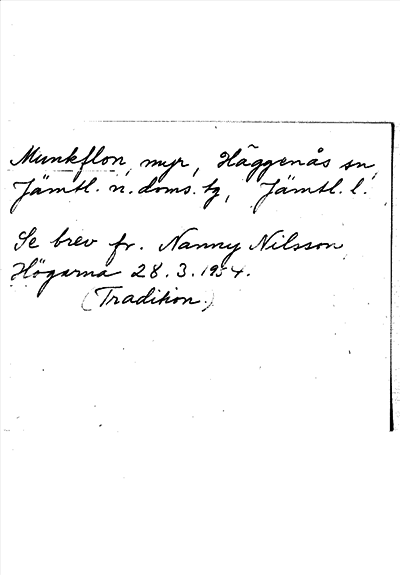 Munkflon, myr, Häggenås sn,
Jämtl. n. doms. tg, Jämtl. l.
Se brev fr. Nanny Nilsson,
Högarna 28.3.1954.
(Tradition.)